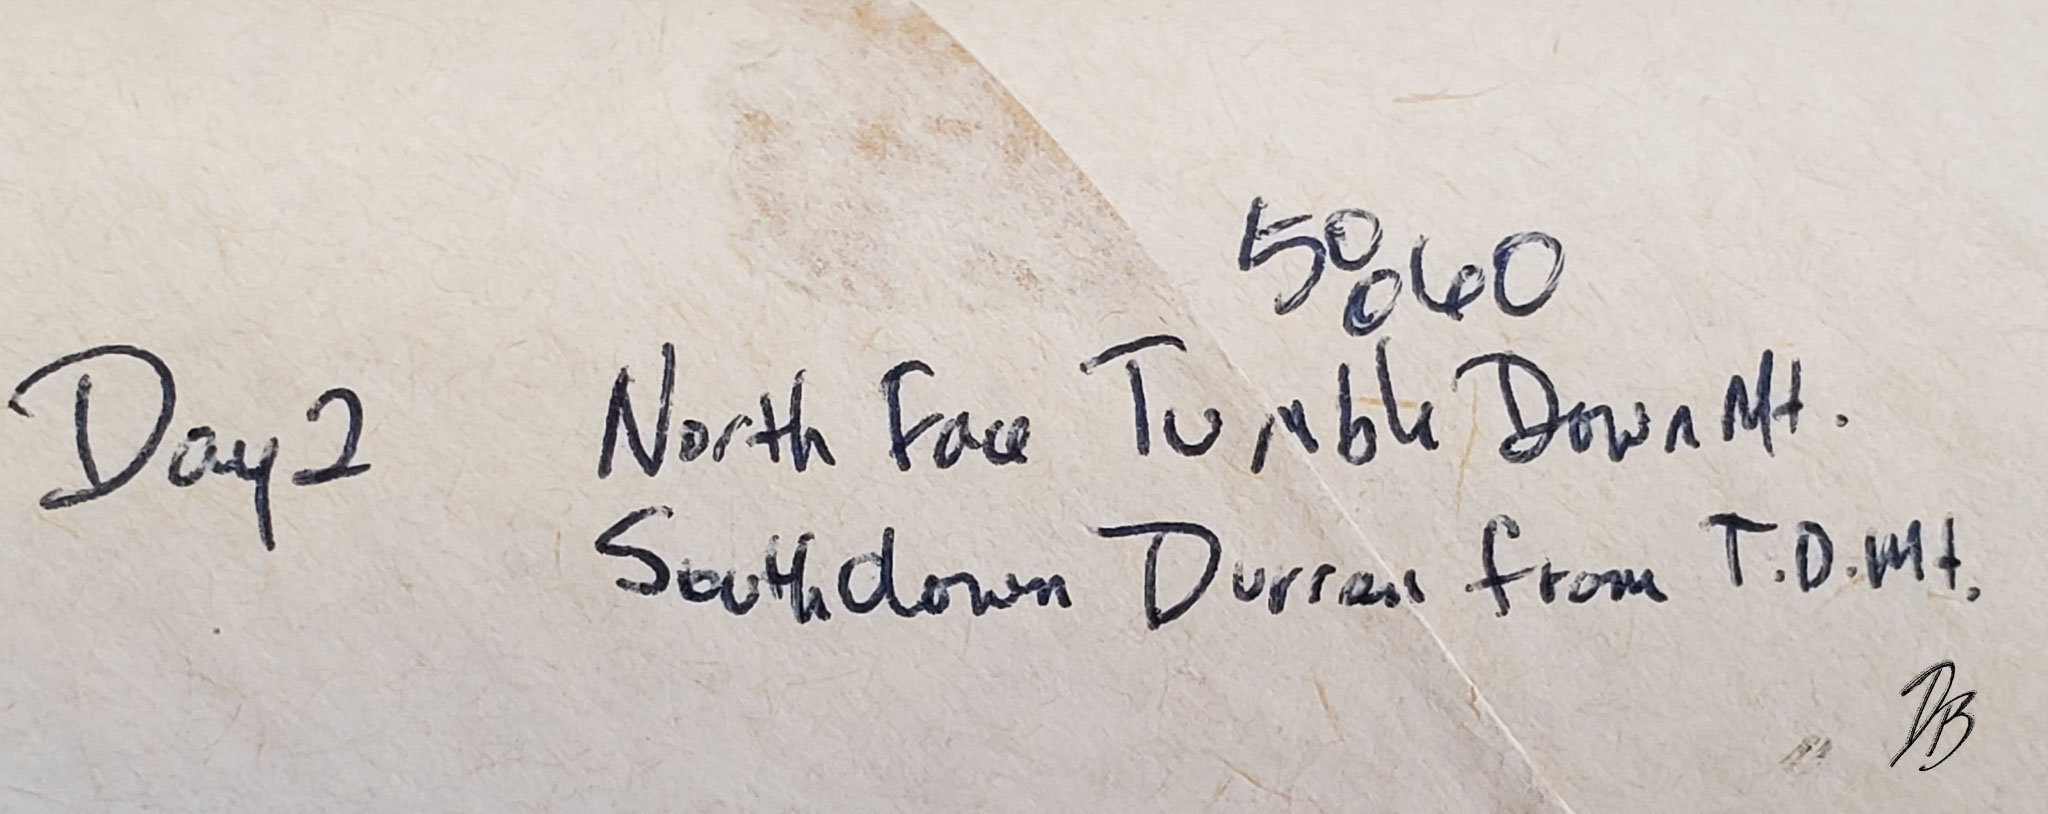 5060
Day 2 North Face Tumble Down Mt.
Southdown Durren from T.D. Mt.
DB